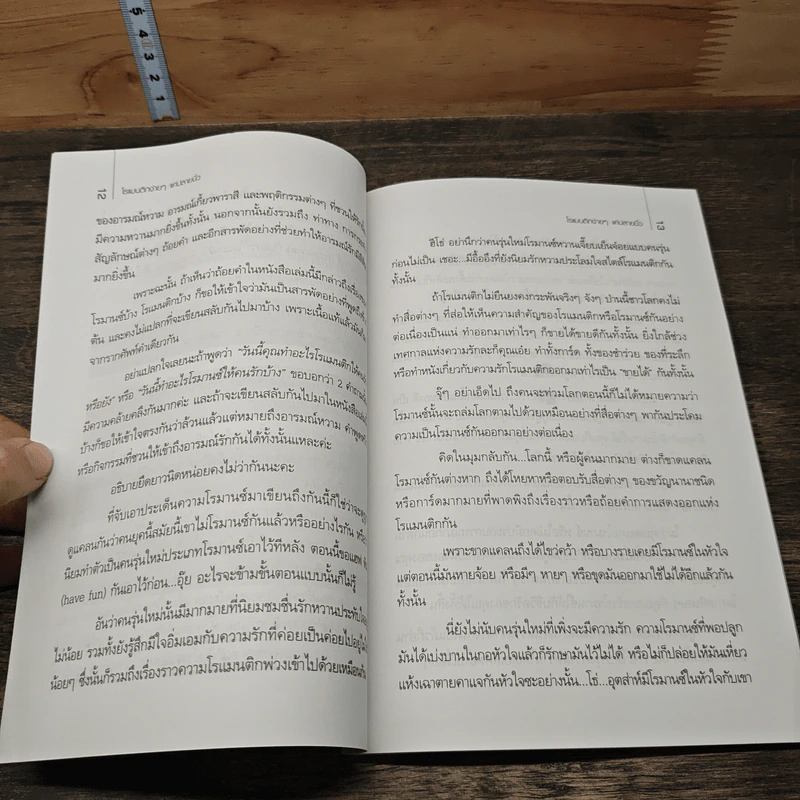 5
4
3
2
1
12
โรแมนติกง่ายๆ แค่ปลายนิ้ว
ของอารมณ์หวาม อารมณ์เกี้ยวพาราสี และพฤติกรรมต่างๆ ที่ชวนให้รัก
มีความหวานมากยิ่งขึ้นทั้งนั้น นอกจากนั้นยังรวมถึง ท่าทาง การ
สัญลักษณ์ต่างๆ ถ้อยคำ และอีกสารพัดอย่างที่ช่วยทำให้อารมณ์รัก
มากยิ่งขึ้น
เพราะฉะนั้น ถ้าเห็นว่าถ้อยคำในหนังสือเล่มนี้มีกล่าวถึงเรื่อง
โรมานซ์บ้าง โรแมนติกบ้าง ก็ขอให้เข้าใจว่ามันเป็นสารพัดอย่างที่พูดถึง
ต้น และคงไม่แปลกที่จะเขียนสลับกันไปมาบ้าง เพราะเนื้อแท้แล้วมัน
จากรากศัพท์คำเดียวกัน
อย่าแปลกใจเลยนะถ้าพูดว่า "วันนี้คุณทำอะไรโรแมนติกให้คน
หรือยัง" หรือ "วันนี้ทำอะไรโรมานซ์ให้คนรักบ้าง" ขอบอกว่า 2 คำถาม
มีความคล้ายคลึงกันมากค่ะ และถ้าจะเขียนสลับกันไปมาในหนังสือ
บ้างก็ขอให้เข้าใจตรงกันว่าล้วนแล้วแต่หมายถึงอารมณ์หวาม คำพูด
หรือกิจกรรมที่ชวนให้เข้าถึงอารมณ์รักกันได้ทั้งนั้นแหละค่ะ
อธิบายยืดยาวนิดหน่อยคงไม่ว่ากันนะคะ
ที่จับเอาประเด็นความโรมานซ์มาเขียนถึงกันนี้ก็ใช่ว่าจะ
ดูแคลนกันว่าคนยุคนี้สมัยนี้เขาไม่โรมานซ์กันแล้วหรืออย่างไรกัน
นิยมทำตัวเป็นคนรุ่นใหม่ประเภทโรมานซ์เอาไว้ทีหลัง ตอนนี้ขอแฮฟ
(have fun) กันเอาไว้ก่อน...อุ๊ย อะไรจะข้ามขั้นตอนแบบนั้นก็ไม่รู้
อันว่าคนรุ่นใหม่นั้นมีมากมายที่นิยมชมชื่นรักหวานประทับใจ
ไม่น้อย รวมทั้งยังรู้สึกมีใจอิ่มเอมกับความรักที่ค่อยเป็นค่อยไปอยู่
น้อยๆ ซึ่งนั้นก็รวมถึงเรื่องราวความโรแมนติกพ่วงเข้าไปด้วยเหมือนกัน
โรแมนติกง่ายๆ แค่ปลายนิ้ว
13
ฮีโธ่ อย่านึกว่าคนรุ่นใหม่โรมานซ์หวานเจี๊ยบเย็นจ๋อยแบบคนรุ่น
ก่อนไม่เป็น เชอะ...มีอื้ออึงที่ยังนิยมรักหวามประโลมใจสไตล์โรแมนติกกัน
ทั้งนั้น
ถ้าโรแมนติกไม่ยืนยงคงกระพันจริงๆ จังๆ ป่านนี้ชาวโลกคงไม่
ทำสื่อต่างๆ ที่ส่อให้เห็นความสำคัญของโรแมนติกหรือโรมานซ์กันอย่าง
ต่อเนื่องเป็นแน่ ทำออกมาเท่าไรๆ ก็ขายได้ขายดีกันทั้งนั้น ยิ่งใกล้ช่วง
เทศกาลแห่งความรักละก็คุณเอ๋ย ทำทั้งการ์ด ทั้งของชำร่วย ของที่ระลึก
หรือทำหนังเกี่ยวกับความรักโรแมนติกออกมาเท่าไรเป็น "ขายได้" กันทั้งนั้น
จุ๊ๆ อย่าเอ็ดไป ถึงคนจะท่วมโลกตอนนี้ก็ไม่ได้หมายความว่า
โรมานซ์นั้นจะถล่มโลกตามไปด้วยเหมือนอย่างที่สื่อต่างๆ พากันประโคม
ความเป็นโรมานซ์กันออกมาอย่างต่อเนื่อง
คิดในมุมกลับกัน...โลกนี้ หรือผู้คนมากมาย ต่างก็ขาดแคลน
โรมานซ์กันต่างหาก ถึงได้โหยหาหรือตอบรับสื่อต่างๆ ของขวัญนานาชนิด
หรือการ์ดมากมายที่พาดพิงถึงเรื่องราวหรือถ้อยคำการแสดงออกแห่ง
โรแมนติกกัน
เพราะขาดแคลนถึงได้ไขว่คว้า หรือบางรายเคยมีโรมานซ์ในหัวใจ
แต่ตอนนี้มันหายจ้อย หรือมีๆ หายๆ หรือขุดมันออกมาใช้ไม่ได้อีกแล้วกัน
ทั้งนั้น
นี่ยังไม่นับคนรุ่นใหม่ที่เพิ่งจะมีความรัก ความโรมานซ์ที่พอปลูก
มันได้เบ่งบานในกอหัวใจแล้วก็รักษามันไว้ไม่ได้ หรือไม่ก็ปล่อยให้มันเหี่ยว
แห้งเฉาตายคาแจกันหัวใจซะอย่างนั้น...โธ่...อุตส่าห์มีโรมานซ์ในหัวใจกับเขา